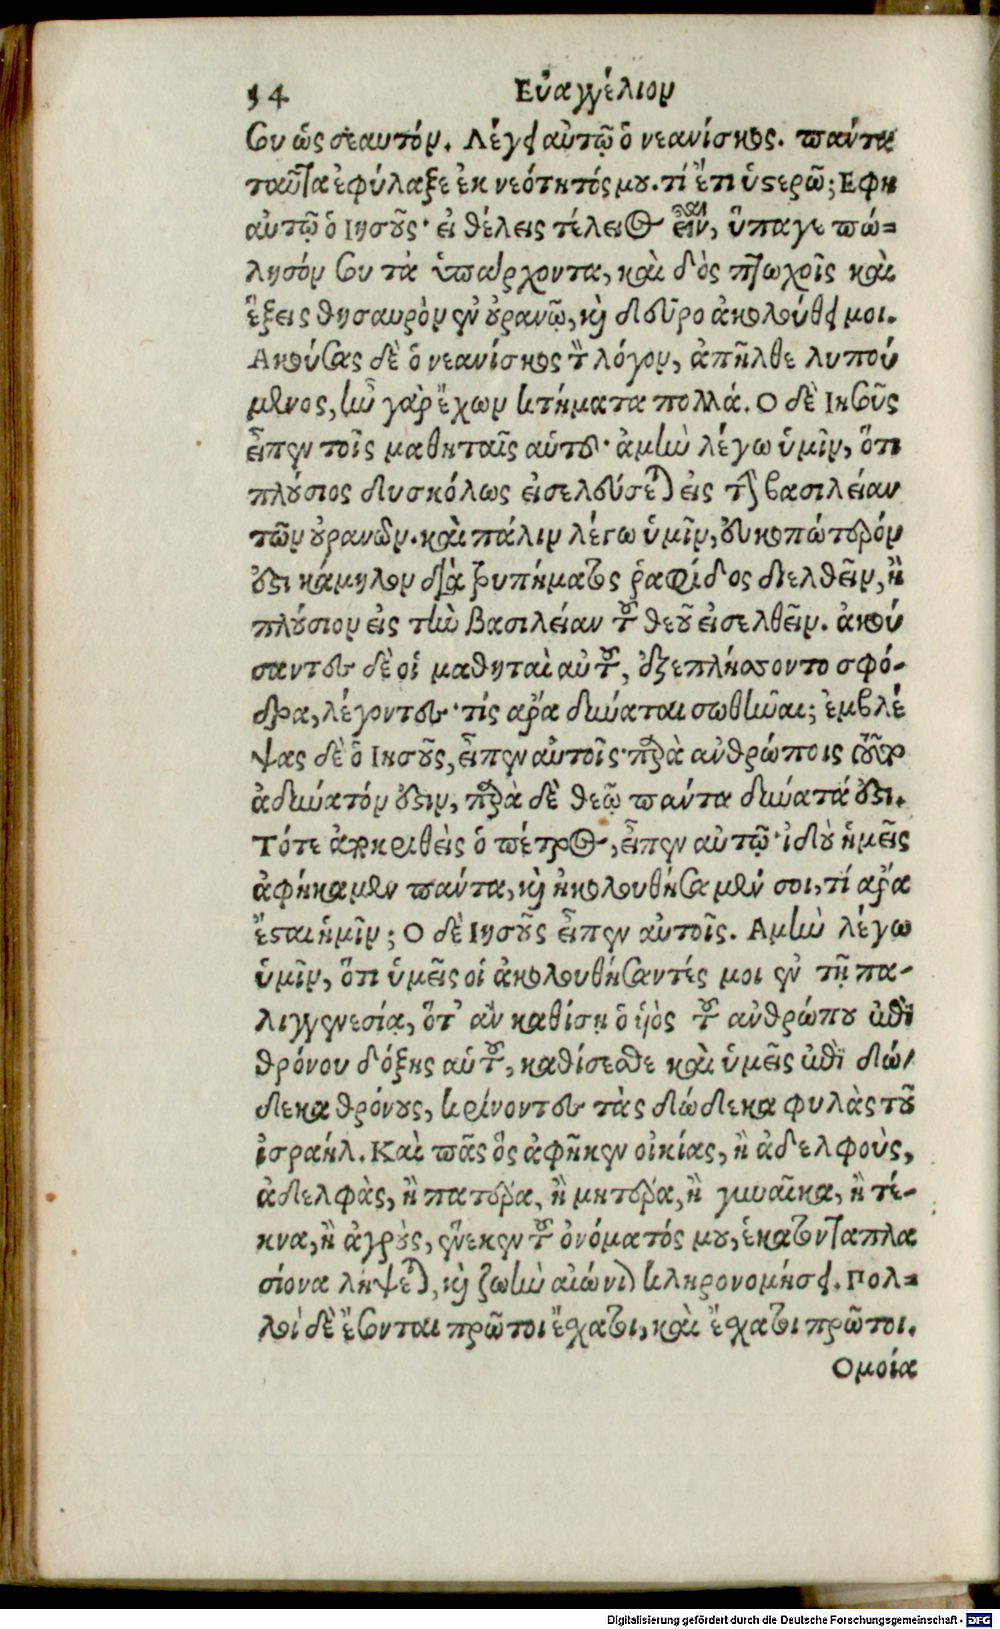 54 Εὐαγγέλιον
σου ὡς σεαυτόν. Λέγει αὐτῷ ὁ νεανίσκος. πάντα
ταῦτα ἐφύλαξε ἐκ νεότητός μου. τί ἔτι ὑστερῶ; Εφη
αὐτῷ ὁ Ιησοῦς· εἰ θέλεις τέλειος εἶναι, ὕπαγε πώ=
λησόν σου τὰ ὑπάρχοντα, καὶ δὸς πτωχοῖς καὶ
ἕξεις θησαυρὸν ἐν οὐρανῷ, καὶ δεῦρο ἀκολούθει μοι.
Ακούσας δὲ ὁ νεανίσκος τὸν λόγον, ἀπῆλθε λυπού
μενος, ἦν γὰρ ἔχων κτήματα πολλά. Ο δὲ Ιησοῦς
εἶπεν τοῖς μαθηταῖς αὐτοῦ· ἀμὴν λέγω ὑμῖν, ὅτι
πλούσιος δυσκόλως εἰσελεύσεται εἰς τὴν βασιλείαν
τῶν οὐρανῶν. καὶ πάλιν λέγω ὑμῖν, εὐκοπώτερόν
ἐστι κάμηλον διὰ τρυπήματος ῥαφίδος διελθεῖν, ἢ
πλούσιον εἰς τὴν βασιλείαν τοῦ θεοῦ εἰσελθεῖν. ἀκού
σαντες δὲ οἱ μαθηταὶ αὐτοῦ, ἐξεπλήσσοντο σφό-
δρα, λέγοντες· τίς ἄρα δύναται σωθῆναι; ἐμβλέ
ψας δὲ ὁ Ιησοῦς, εἶπεν αὐτοῖς· παρὰ ἀνθρώποις τοῦτο
ἀδύνατόν ἐστιν, παρὰ δὲ θεῷ πάντα δύνατά ἐστι.
Τότε ἀποκριθεὶς ὁ πέτρος, εἶπεν αὐτῷ· ἰδοὺ ἡμεῖς
ἀφήκαμεν πάντα, καὶ ἠκολουθήσαμέν σοι, τί ἄρα
ἔσται ἡμῖν; Ο δὲ Ιησοῦς εἶπεν αὐτοῖς. Αμὴν λέγω
ὑμῖν, ὅτι ὑμεῖς οἱ ἀκολουθήσαντές μοι ἐν τῇ πα-
λιγγενεσίᾳ, ὅτ᾽ ἂν καθίσῃ ὁ υἱὸς τοῦ ἀνθρώπου ἐπὶ
θρόνου δόξης αὐτοῦ, καθίσεσθε καὶ ὑμεῖς ἐπὶ δώ/
δεκα θρόνους, κρίνοντες τὰς δώδεκα φυλὰς τοῦ
ἰσραήλ. Καὶ πᾶς ὃς ἀφῆκεν οἰκίας, ἢ ἀδελφοὺς,
ἀδελφὰς, ἢ πατέρα, ἢ μητέρα, ἢ γυναῖκα, ἢ τέ-
κνα, ἢ ἀγροὺς, ἕνεκεν τοῦ ὀνόματός μου, ἑκατονταπλα
σίονα λήψεται, καὶ ζωὴν αἰώνιον κληρονομήσει. Πολ=
λοὶ δὲ ἔσονται πρῶτοι ἔσχατοι, καὶ ἔσχατοι πρῶτοι.
Ομοία
Digitalisierung gefördert durch die Deutsche Forschungsgemeinschaft - DFG